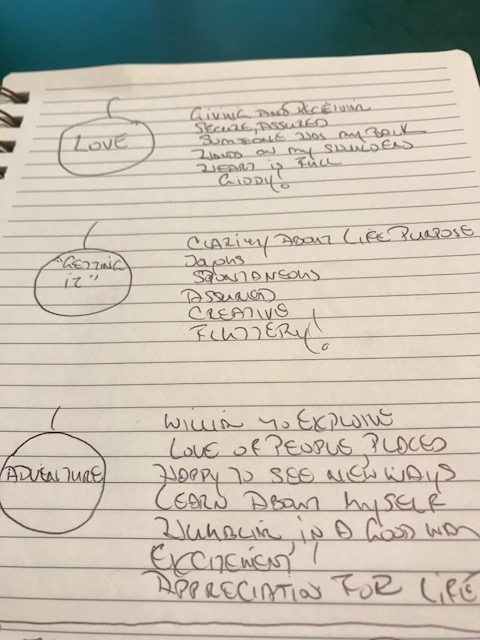 LOVE
GIVING AND RECEIVIN
SECURE, ASSURED
SOMEONE HAS MY BACK
HANDS ON MY SHOULDERS
HEART IS FULL
GIDDY!
"GETTING
IT"
CLARITY ABOUT LIFE PURPOSE
JOYFUL
SPONTANEOUS
ASSURED
CREATIVE
FLUTTERY!
ADVENTURE
WILLIN TO EXPLORE
LOVE OF PEOPLE, PLACES
HAPPY TO SEE NEW WAYS
LEARN ABOUT MYSELF
HUMBLIN, IN A GOOD WAY
EXCITEMENT!
APPRECIATION FOR LIFE